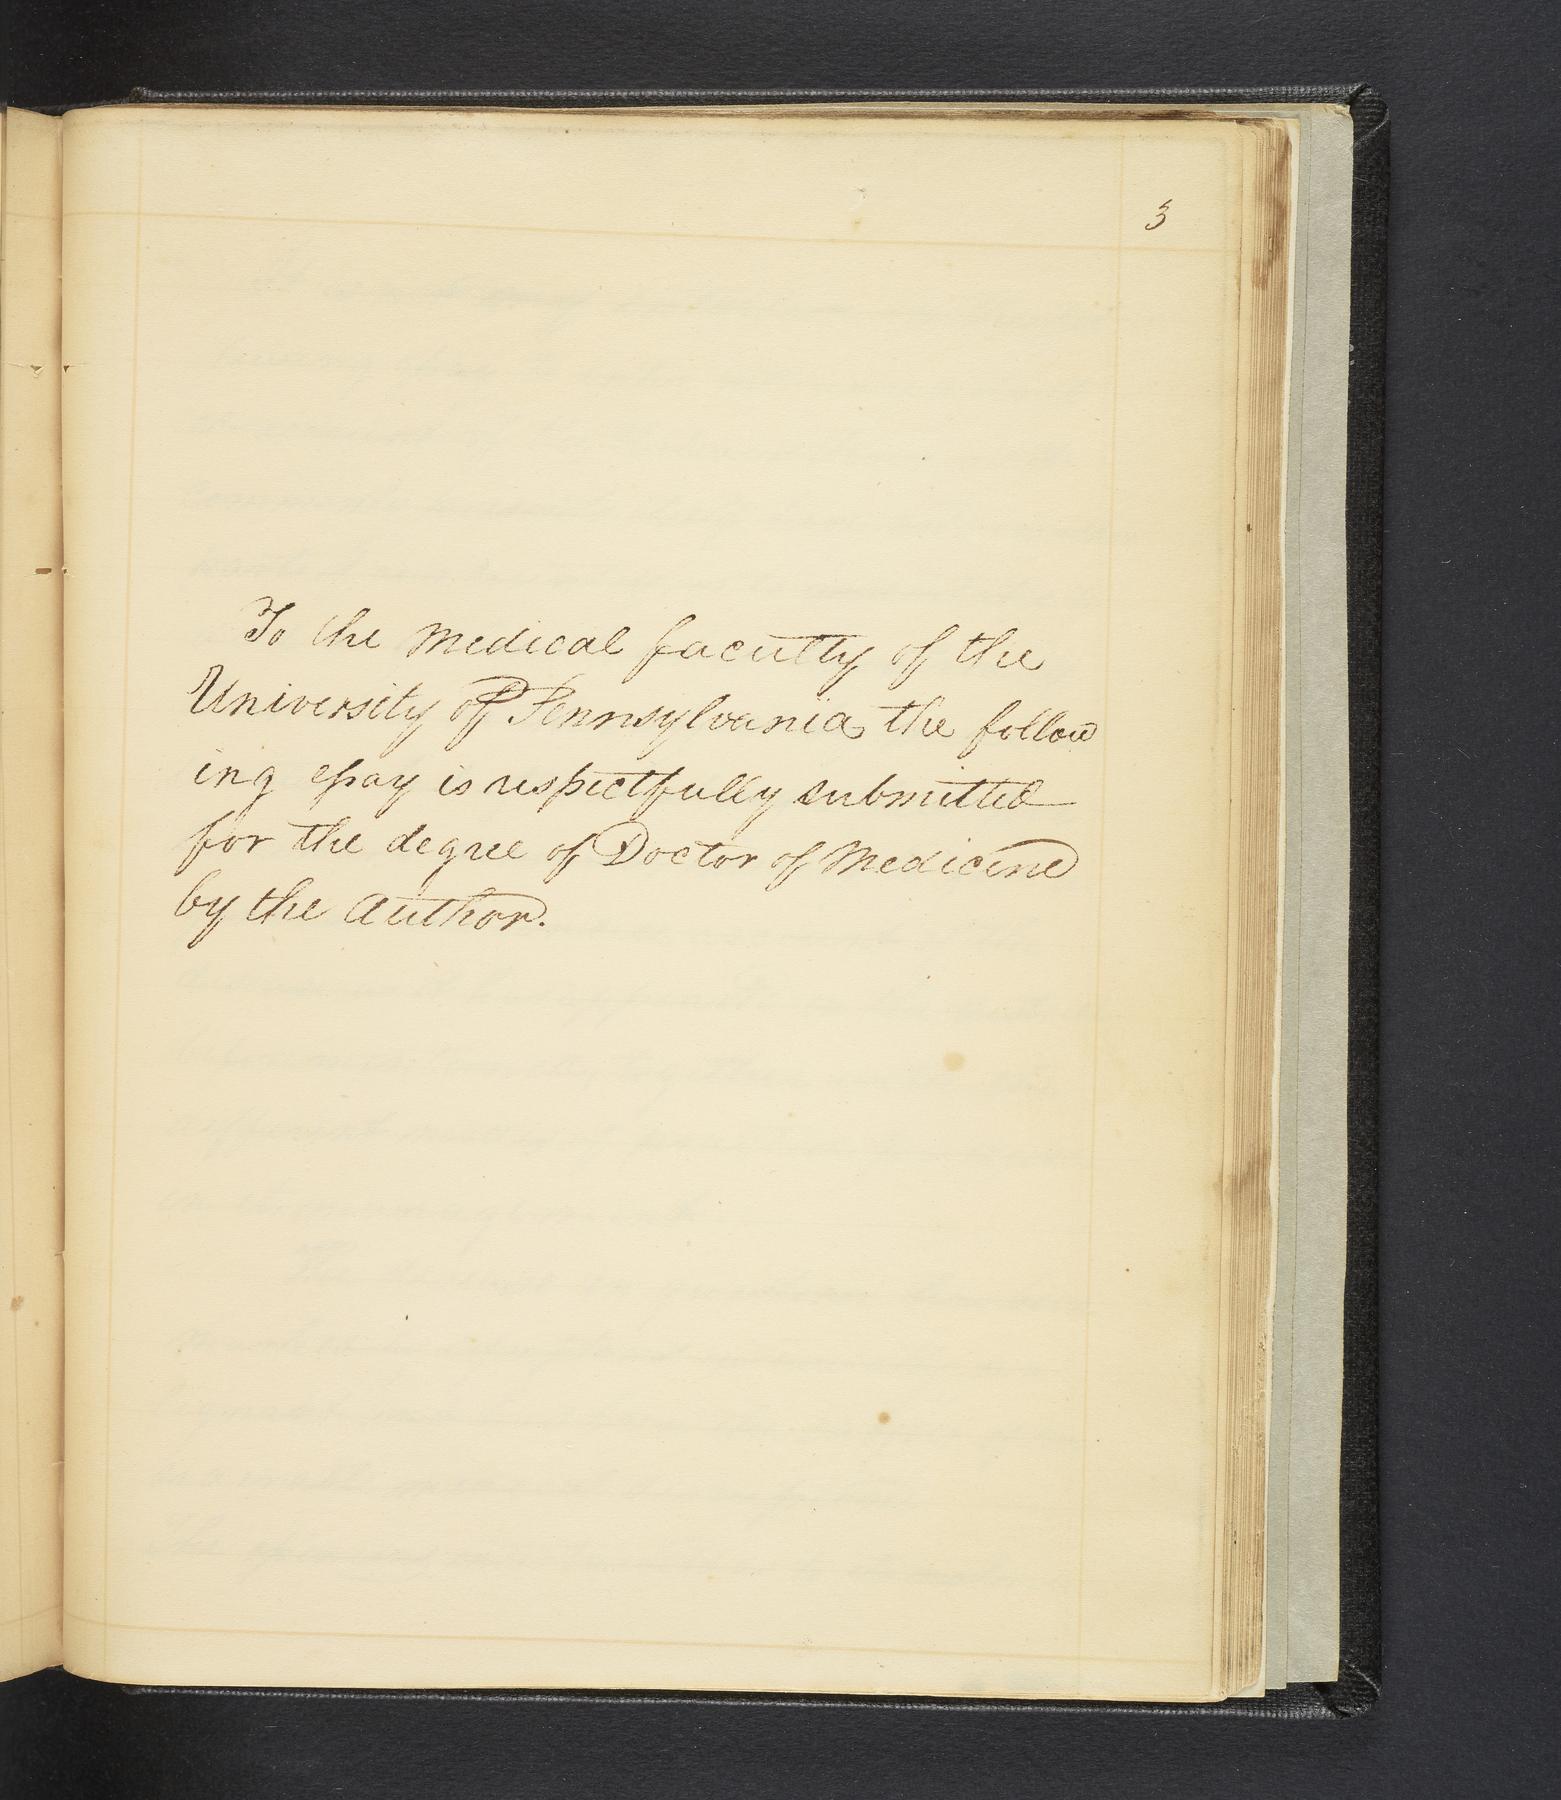 3
To the Medical faculty of the
University of Pennsylvania the follow
ing essay is respectfully submitted
for the degree of Doctor of Medicine
by the Author.